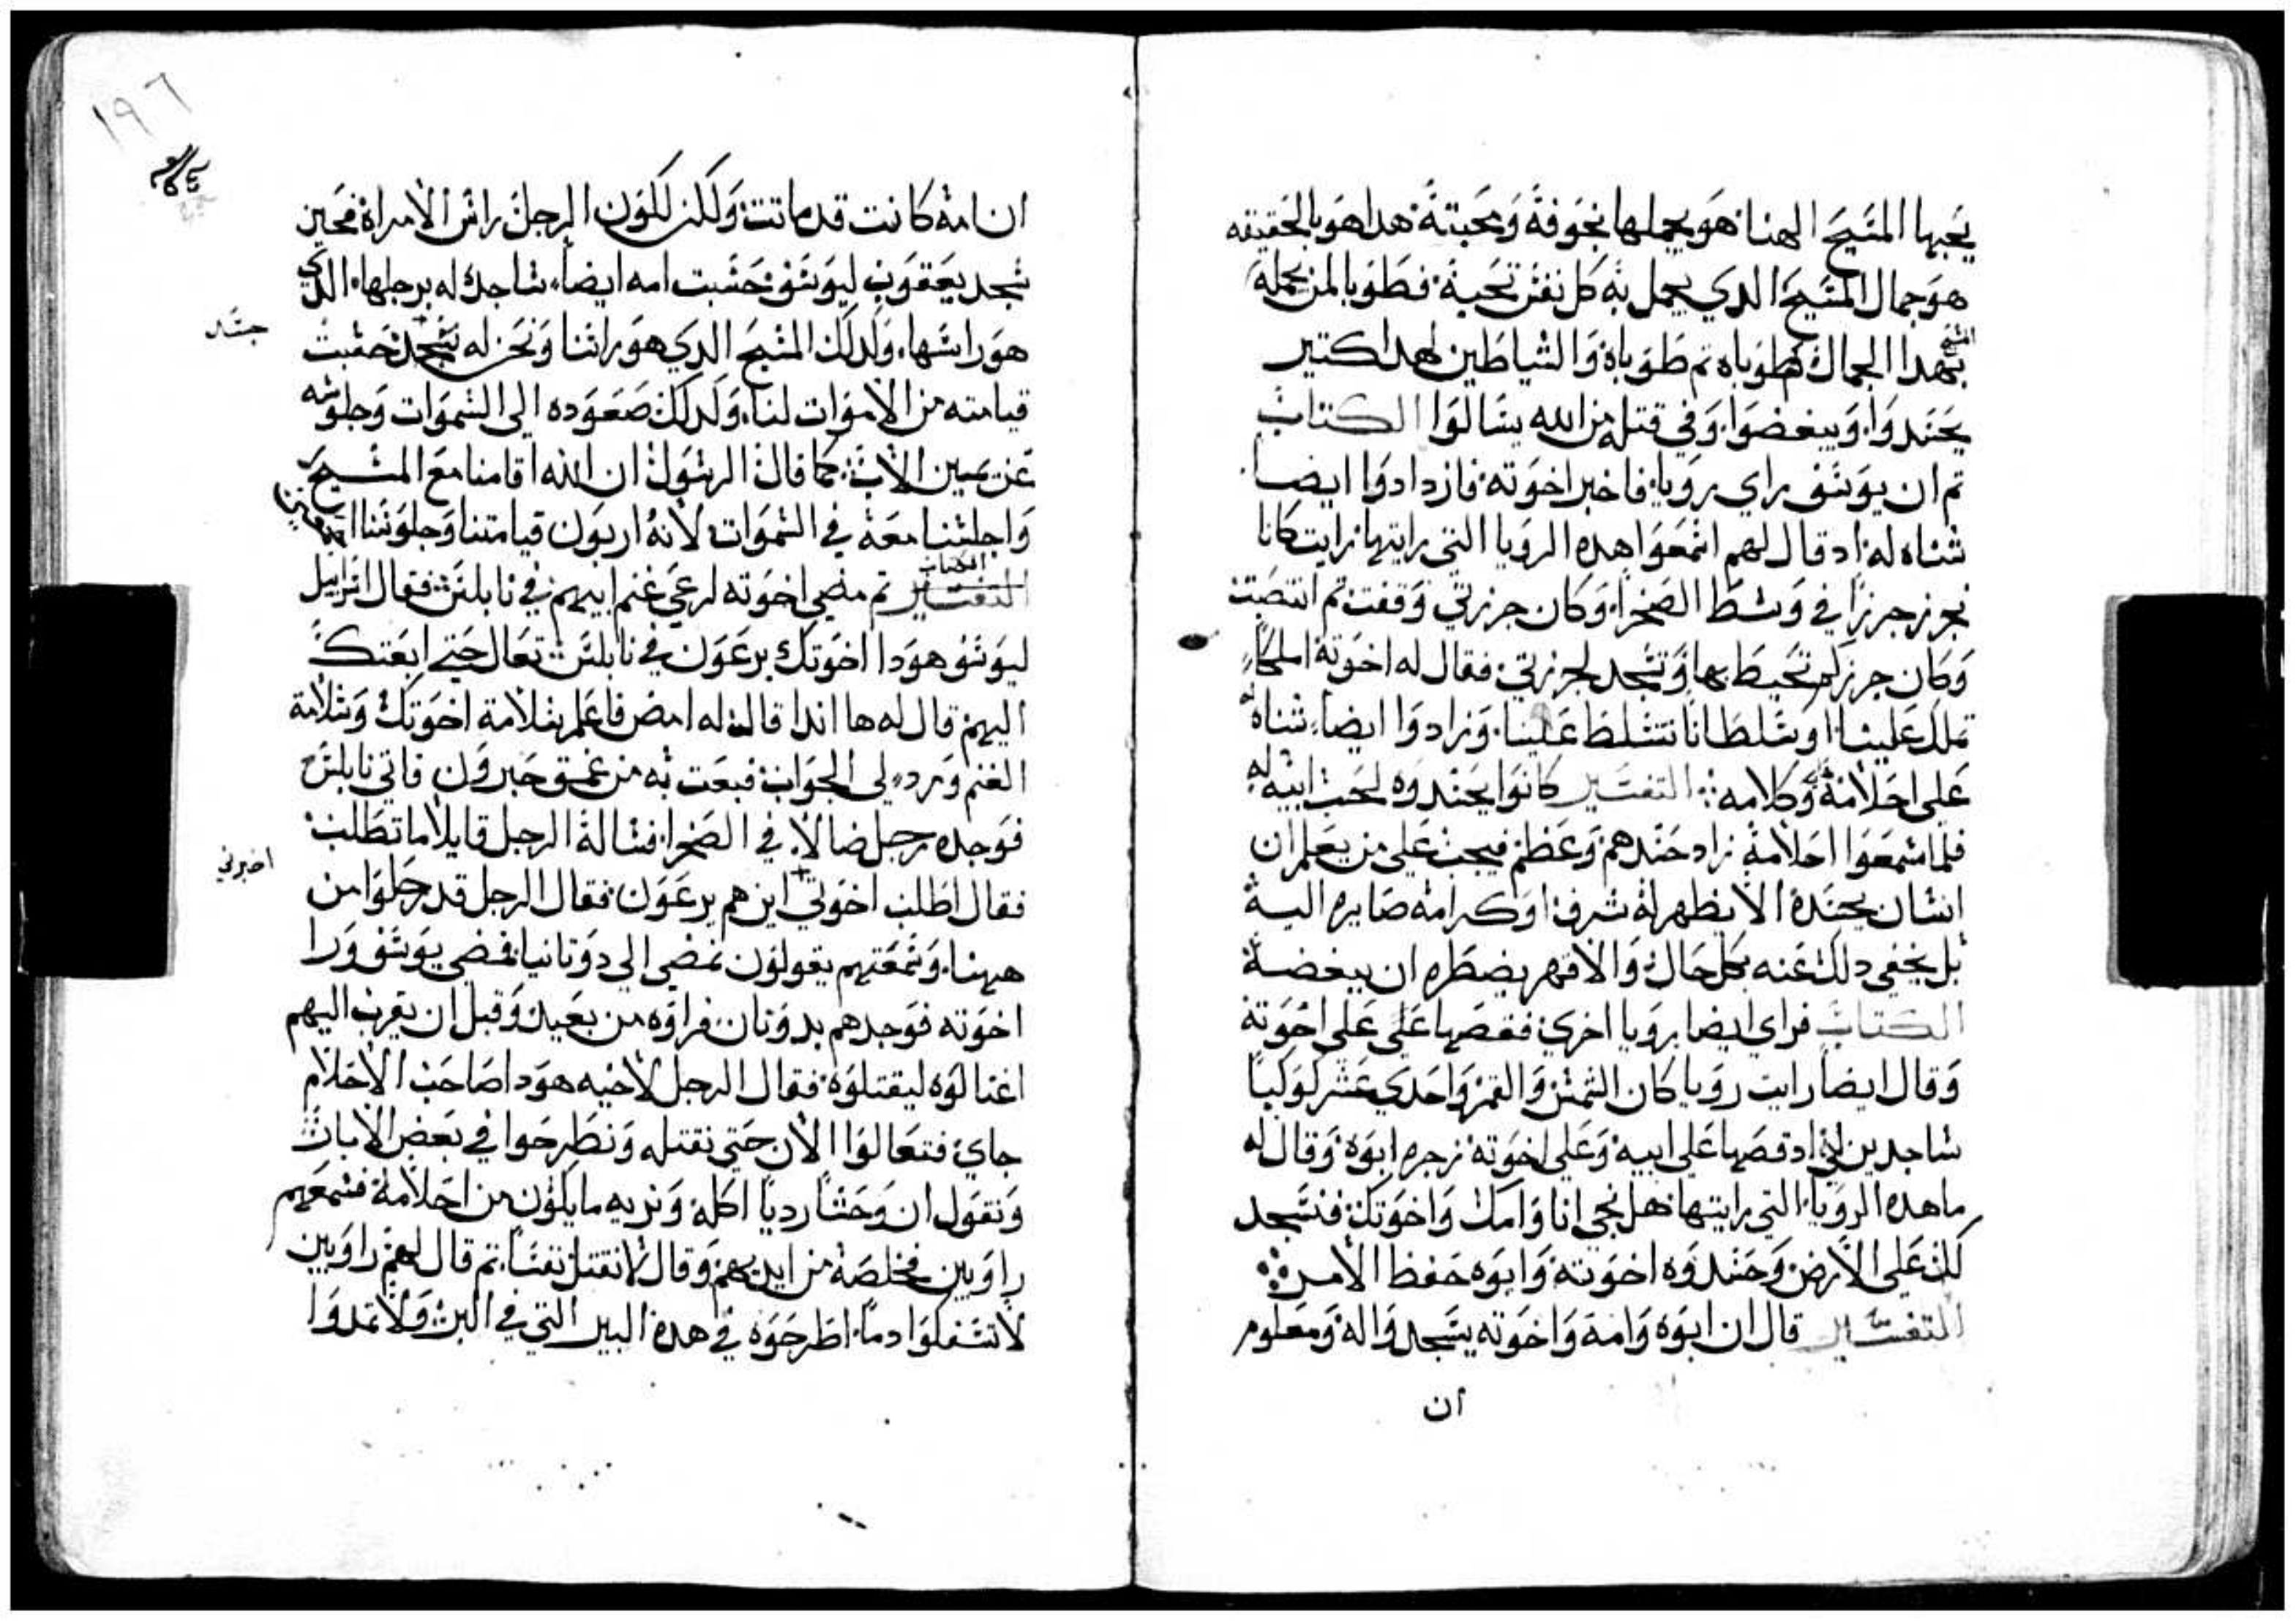 يحبها المسيح الهنا هو يجملها بخوفه ومحبته هدا هو بالحقيقه
هو جمال المسيح الدي يجمل به كل نفس تحبه فطوبا لمن يجمله
المسيح
بهدا الجمال فطوباه تم طوباه والشياطين لهدا كتير
يحسدوا ويبغضوا وفي قتله من الله يسالوا الكتاب
تم ان يوسف راي رويا فاخبر اخوته فازدادوا ايضا
شناه له اد قال لهم اسمعوا هده الرويا التي رايتها رايت كانا
نجرز جرزا في وسط الصحرا وكان جرزتي وقفت تم انتصبت
وكان جرزكم تحيط بها وتسجد لجرزتي فقال له اخوته املكا
تملك علينا او سلطانا تتسلط علينا وزادوا ايضا شناه له
على احلامه وكلامه التفسير كانوا يحسدوه لحب ابيه له
فلما سمعوا احلامه زاد حسدهم وعظم فيجب على من يعلم ان
انسان يحسده الا يظهر له شرف او كرامه صايره اليه
بل يخفي دلك عنه بكل حال والا فهر يضطره ان يبغضه
الكتاب فراي ايضا رويا اخري فقصها على على اخوته
وقال ايضا رايت رويا كان الشمس والقمر واحدي عشر كوكبا
ساجدين لي اد قصها على ابيه وعلى اخوته زجره ابوه وقال له
ما هده الرويا التي رايتها هل نجي انا وامك واخوتك فنسجد
لك على الارض وحسدوه اخوته وابوه حفظ الامر
التفسير قال ان ابوه وامه واخوته يسجدوا له ومعلوم
ان
١٩٦
ان امه كانت قد ماتت ولكن لكون الرجل راس الامراه فحين
سجد يعقوب ليوسف حسبت امه ايضا ساجده له برجلها الدي
هو راسها ولدلك المسيح الدي هو راسنا ونحن له جسد حسبت
جسد
قيامته من الاموات لنا ولدلك صعوده الى السموات وجلوسه
عن يمين الاب كما قال الرسول ان الله اقامنا مع المسيح
واجلسنا معه في السموات لانه اربون قيامتنا وجلوسنا
الكتاب
التفسير تم مضي اخوته لرعي غنم ابيهم في نابلس فقال اسراييل
ليوسف هودا اخوتك يرعون في نابلس تعال حتي ابعتك
اليهم قال له ها اندا قال له امض فاعلم بسلامة اخوتك وسلامة
الغنم ورد لي الجواب فبعت به من عمق حبرون فاتي نابلس
فوجده رجل ضالا في الصحرا فساله الرجل قايلا ما تطلب
فقال اطلب اخوتي اين هم يرعون فقال الرجل قد رحلوا من
اخبرني
هيهنا وسمعتهم يقولون نمضي الي دوتانيا فمضي يوسف ورا
اخوته فوجدهم بدوتان فراوه من بعيد وقبل ان يقرب اليهم
اغتالوه ليقتلوه فقال الرجل لاخيه هودا صاحب الاحلام
جاي فتعالوا الان حتى نقتله ونطرحوا في بعض الابات
ونقول ان وحشا رديا اكله ونريه ما يكون من احلامه فسمعهم
راوبين فخلصه من ايديهم وقال لا نقتل نفسا تم قال لهم راوبين
لا تسفكوا دما اطرحوه في هده البير التي في البر ولا تمدوا